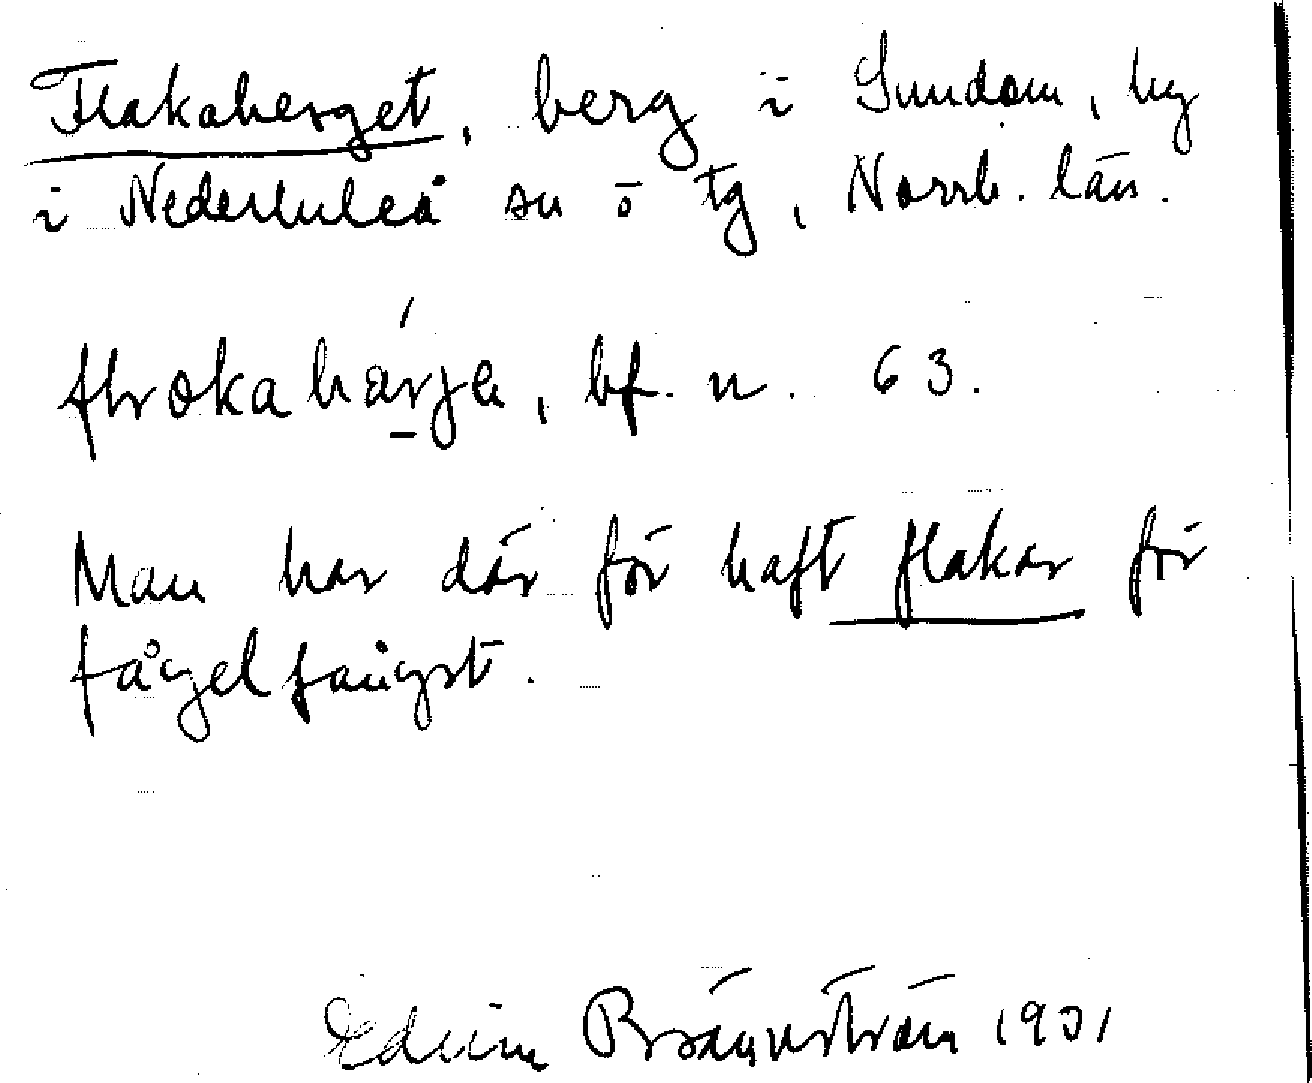 Flakaberget, berg i Sundom, by
i Nederluleå sn o tg, Norrb. län.
bf. n. 63.
Man har där för haft flakar för
fågelfångst.
Edvin Brännström 1931